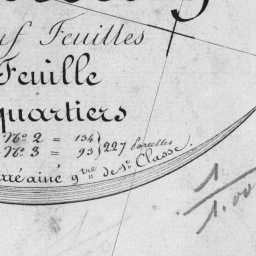 uf Feuilles
Feuille
quartiers
N.º 2 = 134
N.º 3 = 93
227 parcelles
rré ainé g.tre de 1.re Classe.
1
1.00